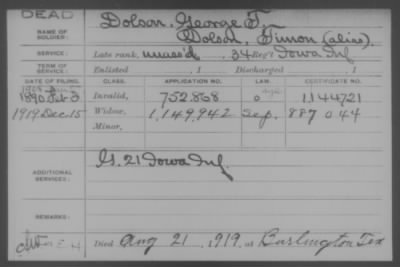 DEAD
NAME OF SOLDIER: Dolson, George T.
Dolson, Timon (alias).
SERVICE: Late rank, unass'd 34 Reg't Iowa Inf
TERM OF SERVICE: Enlisted , 1 Discharged , 1
DATE OF FILING. CLASS. APPLICATION NO. LAW. CERTIFICATE NO.
1890 Feb 3 Invalid, 752.868 1,144721
1919 Dec 15 Widow, 1,149,942 Sep. 887 044
Minor,
ADDITIONAL SERVICES: G. 21 Iowa Inf.
REMARKS:
Died Aug 21, 1919, at Burlington Tex